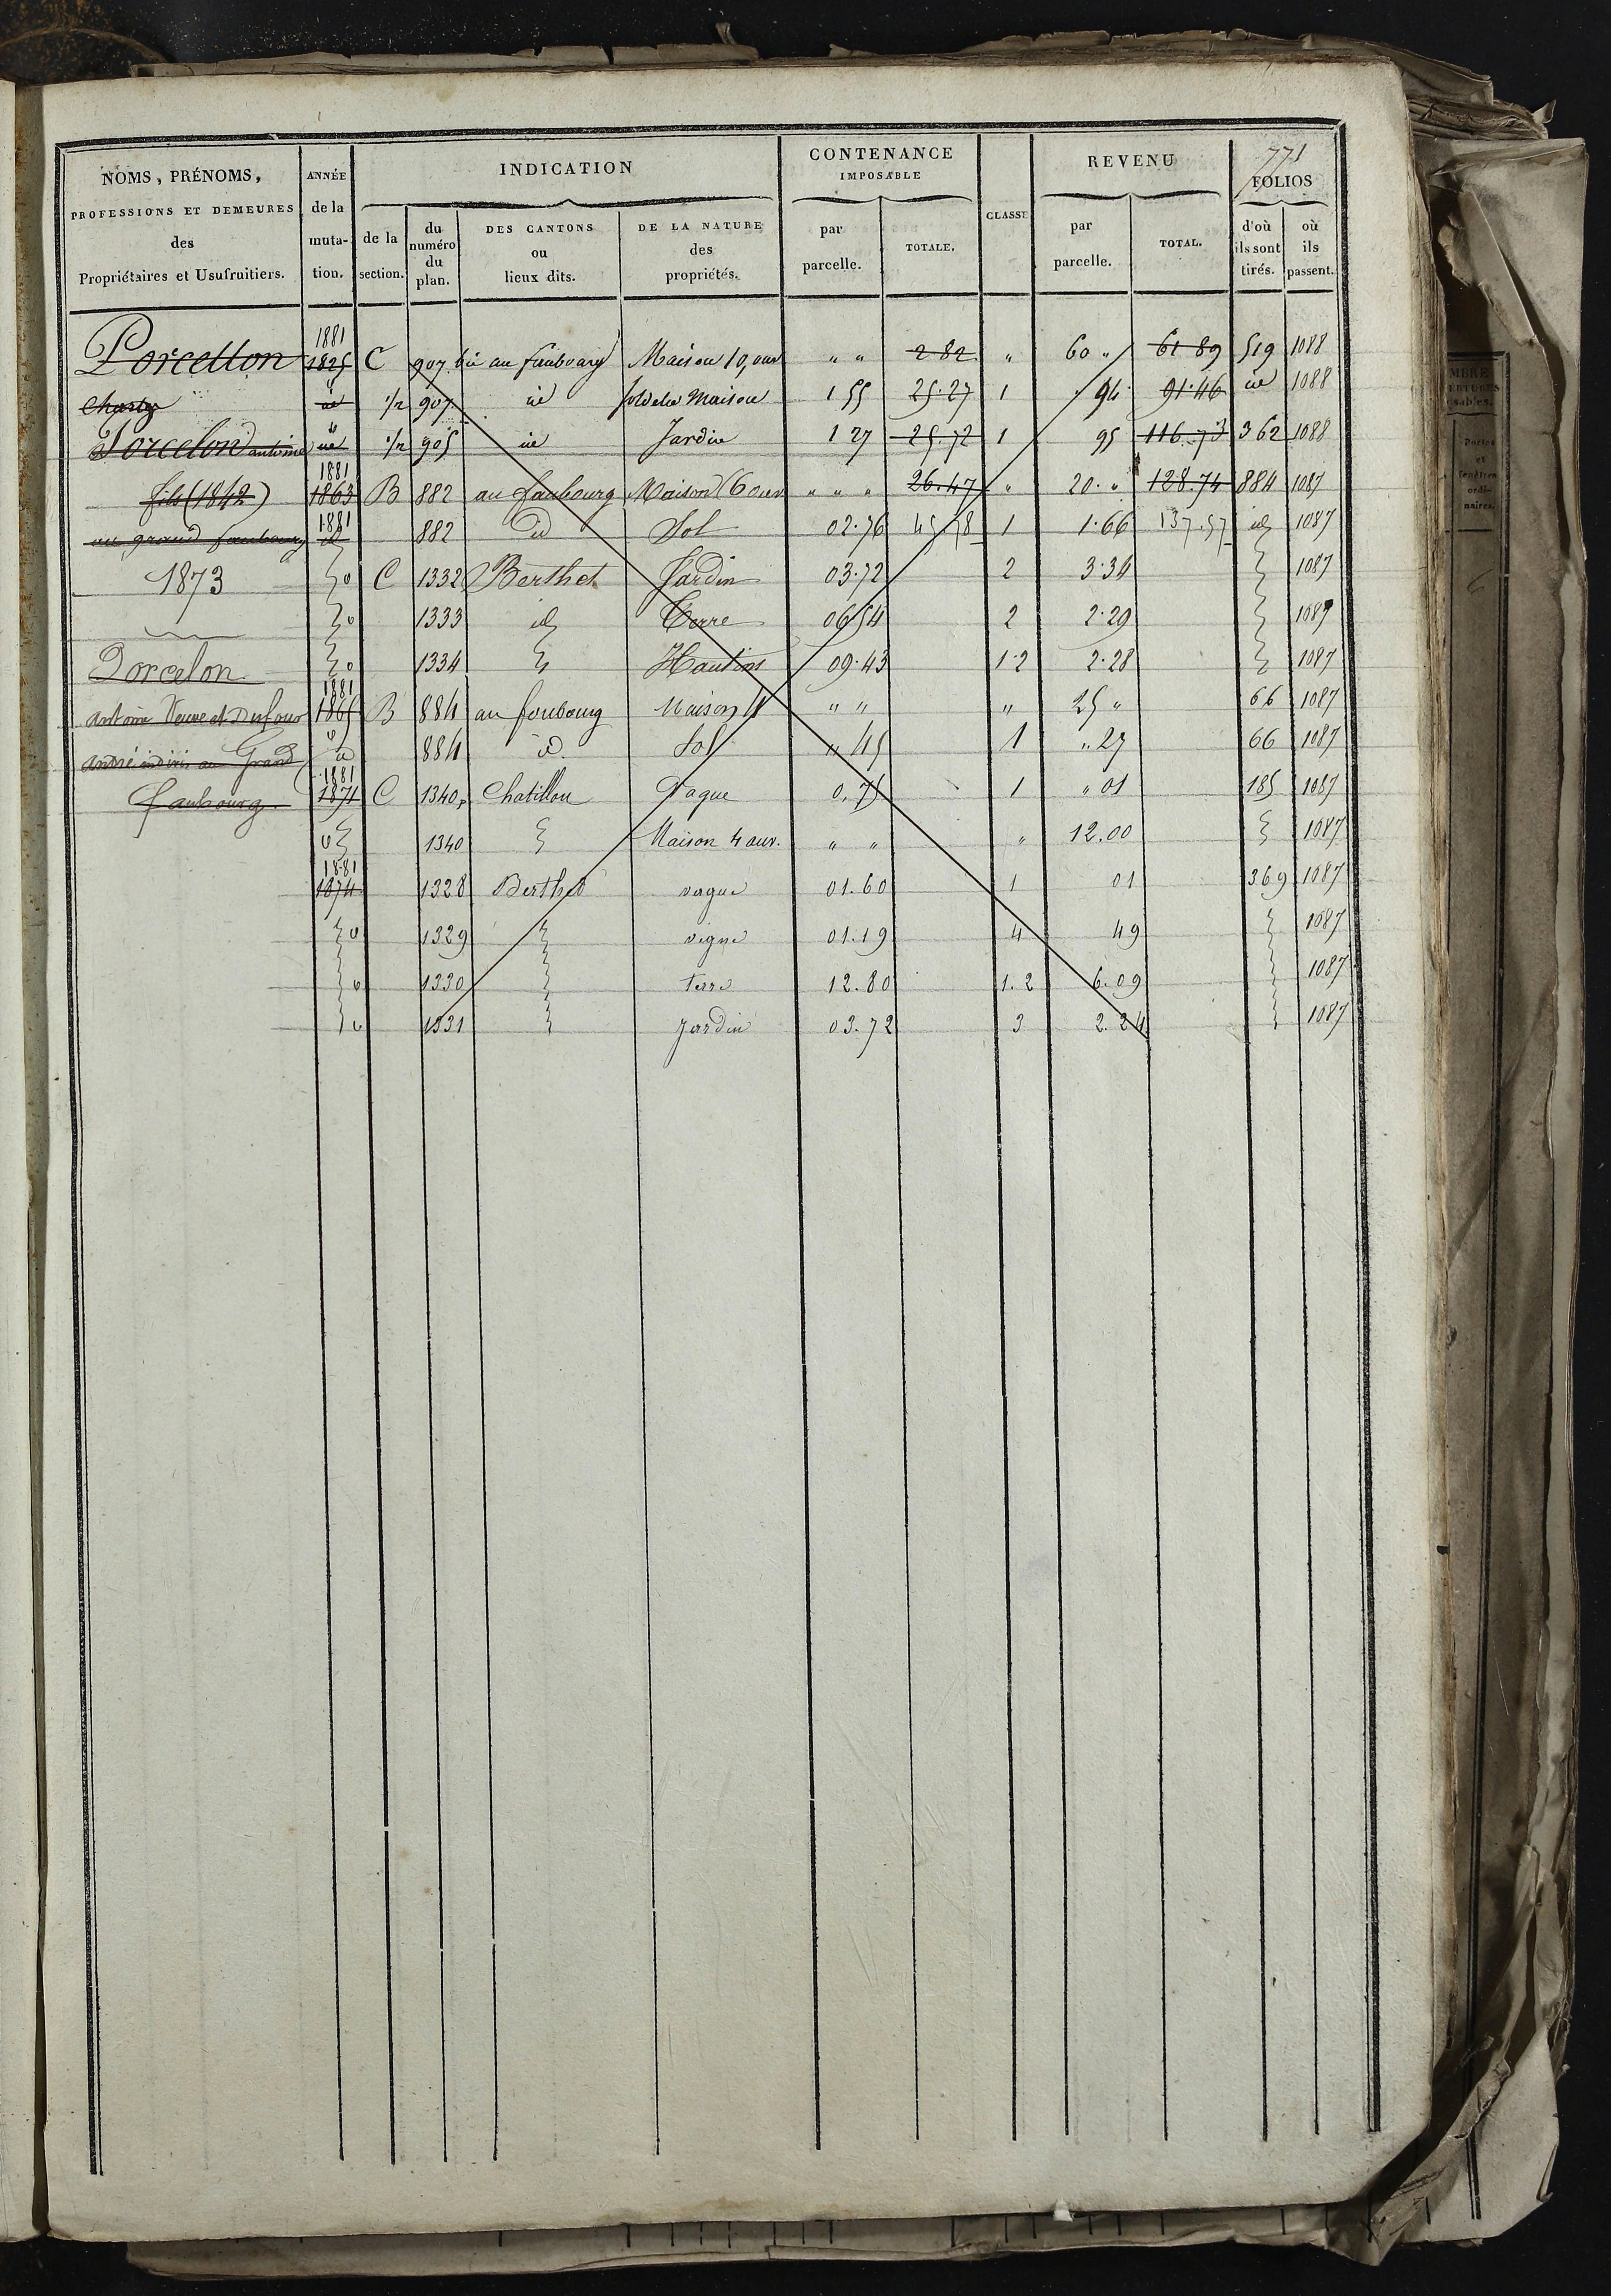 771
NOMS, PRÉNOMS, PROFESSIONS ET DEMEURES des Propriétaires et Usufruitiers.
ANNÉE de la muta-tion.
INDICATION
de la section.
du numéro du plan.
DES CANTONS ou lieux dits.
DE LA NATURE des propriétés.
CONTENANCE IMPOSABLE
par parcelle.
TOTALE.
CLASSE
REVENU
par parcelle.
TOTAL.
FOLIOS
d'où ils sont tirés.
où ils passent.
1881
Porcellon 1825 C 907 bis au faubourg Maison 10 ouv " " 2 82 " 60 " 61 89 519 1088
Charles id 1/2 907 id sol de la Maison 1 55 25.27 1 94 91.46 id 1088
Porcelon antoine id 1/2 905 id Jardin 1 27 25.72 1 95 116.73 362 1088
1881
fils (1842) 1863 B 882 au faubourg Maison (6 ouv " " " 26.47 " 20. " 128.74 884 1087
1881
au grand faubourg id 882 id Sol 02.76 45.78 1 1.66 137.57 id 1087
1873 o C 1332 Berthet Jardin 03.72 2 3.34 1087
o 1333 id Terre 06.54 2 2.29 1087
Porcelon o 1334 Hautins 09.43 1.2 2.28 1087
1881
antoine Veuve et Dufour 1865 B 884 au faubourg Maison 4 " " " 25 " 66 1087
andré indivis au Grand id 884 id Sol " 45 1 " 27 66 1087
1881
faubourg 1871 C 1340p Chatillon Vague 0.75 1 " 01 185 1087
o 1340 Maison 4 ouv. " " " 12.00 1087
1881
1874 1328 Berthet vague 01.60 1 01 369 1087
o 1329 vigne 01.19 4 49 1087
o 1330 terre 12.80 1.2 6.09 1087
o 1331 Jardin 03.72 3 2.24 1087
MBRE
sables.
Portes et fenêtres ordi-naires.